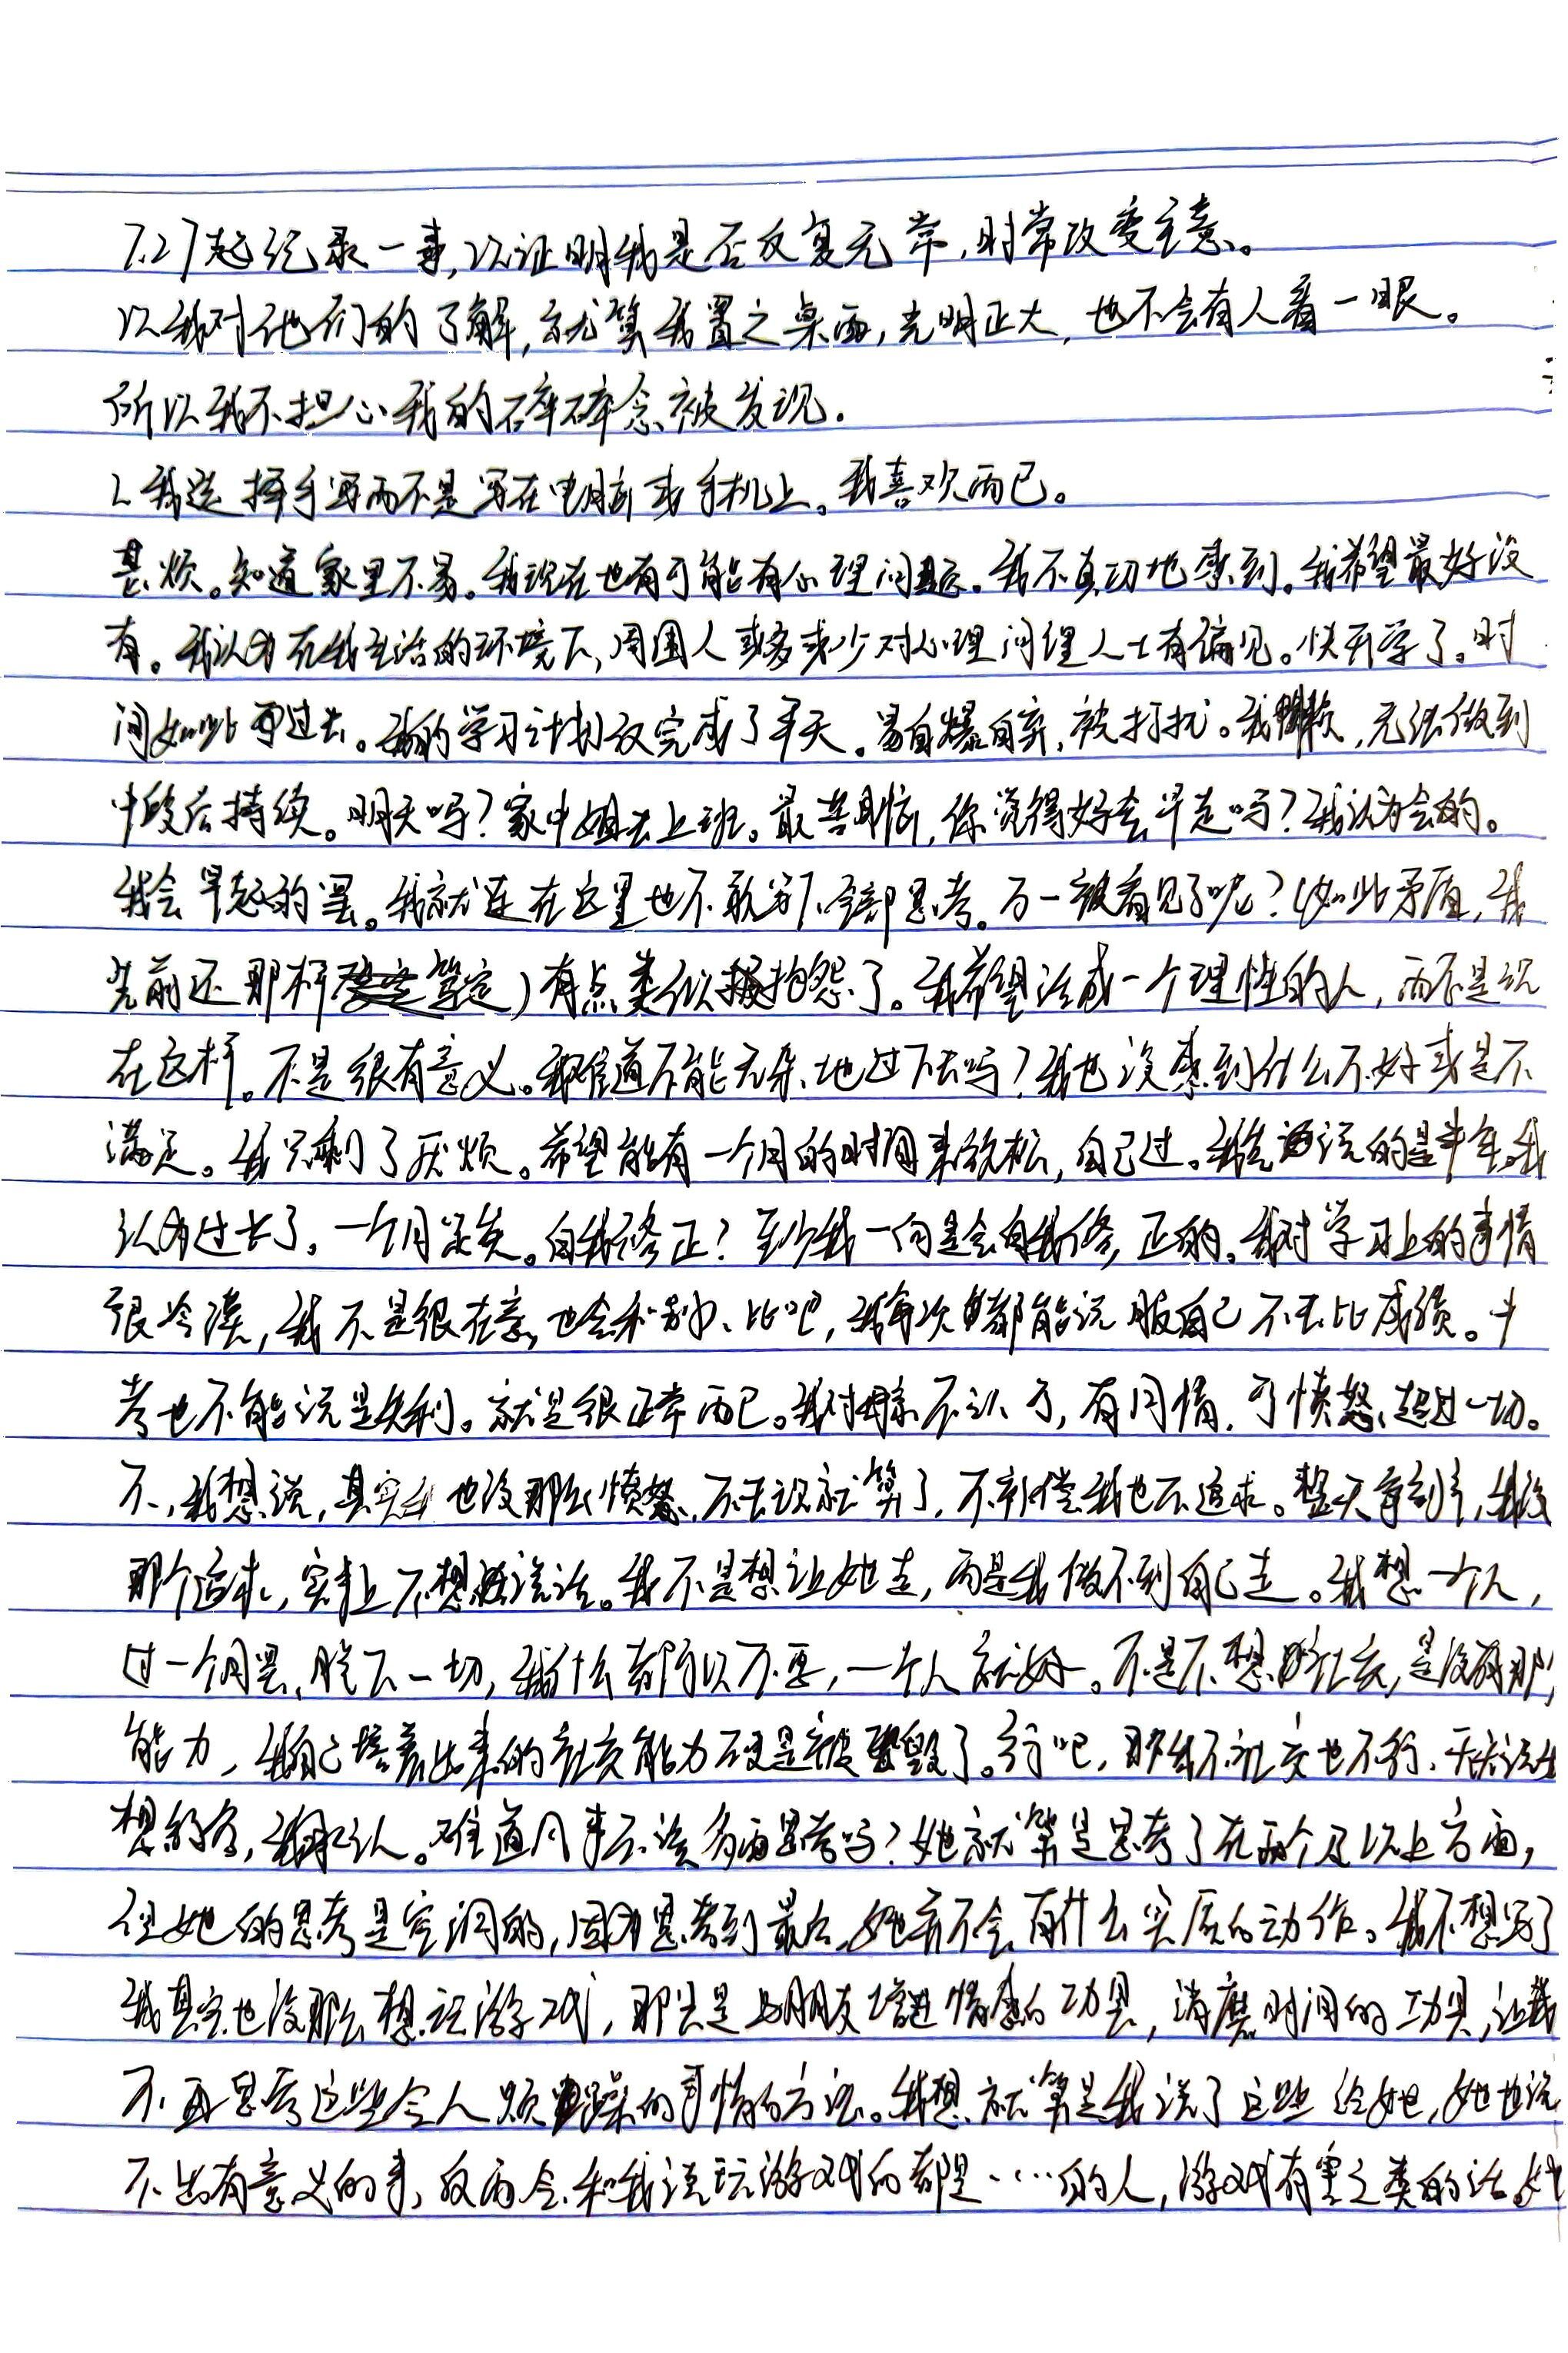 7.27起纪录一事,以证明我是否反复无常,时常改变主意。
以我对他们的了解,就算我置之桌面,光明正大,也不会有人看一眼。
所以我不担心我的碎碎念被发现.
我选择手写而不是写在电脑或手机上。我喜欢而已。
甚烦。知道家里不易。我现在也有可能有心理问题。我不真切地感到。我希望最好没
有。我认为在我生活的环境下,周围人或多或少对心理问理人士有偏见。快开学了。时
间如此再过去。我的学习计划仅完成了半天。易自爆自弃,被打扰。我懒,无法做到
中段后持续。明天吗?家中姐去上班。最苦恼,你觉得好会早走吗?我认为会的。
我会早起的罢。我就连在这里也不敢写下全部思考。万一被看见了呢?(如此矛盾,我
先前还那样笃定)有点类似抱怨了。我希望活成一个理性的人,而不是现
在这样。不是很有意义。我难道不能无杂地过下去吗?我也没感到什么不好或是不
满足。我只剩了厌烦。希望能有一个月的时间来放松,自己过。我先说的是半年,我
认为过长了。一个月足矣。自我修正?至少我一向是会自我修正的。我对学习上的事情
很冷漠,我不是很在意,也会和别人比吧,我每次都能说服自己不去比成绩。中
考也不能说是失利。就是很正常而已。我对母亲不认可,有同情,可愤怒超过一切。
不,我想说,其实也没那么愤怒,不去说就算了,不补偿我也不追求。整天,我没
那个追求,实事上不想说话。我不是想让她走,而是我做不到自己走。我想一个人,
过一个月罢,脱下一切,我什么都可以不要,一个人就好。不是不想社交,是没有那
能力,我自己培养出来的社交能力硬是被毁了。行吧,那我不社交也不行,
想的多,我承认。难道凡事不该多面思考吗?她就算是思考了在两个及以上方面,
但她的思考是空洞的,因为思考到最后,她并不会有什么实质的动作。我不想写了
我其实也没那么想玩游戏,那只是与朋友增进情感的功具,消磨时间的工具,让我
不再思考这些令人烦躁的事情的方法。我想就算是我说了这些给她,她也说
不出有意义的事,反而会和我说玩游戏的都是……的人,游戏有害之类的话。她